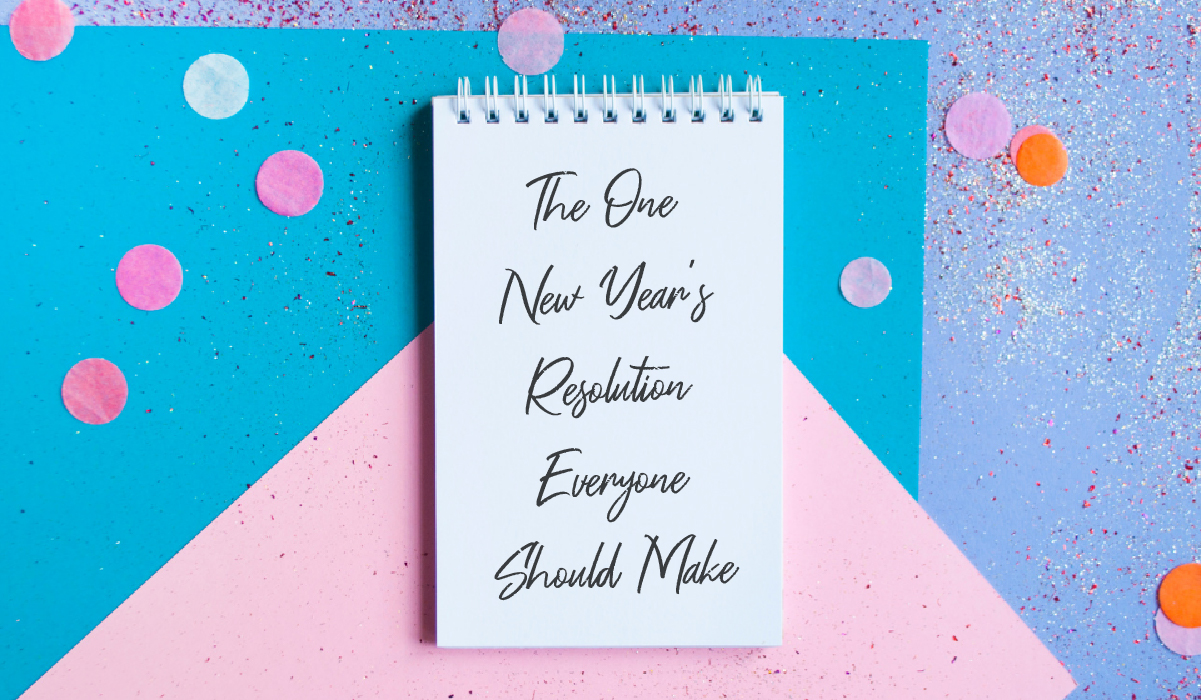 The One
New Year's
Resolution
Everyone
Should Make